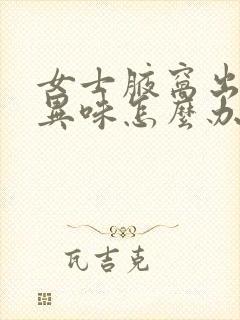 女士腋窝出
異味怎麽办
瓦吉克